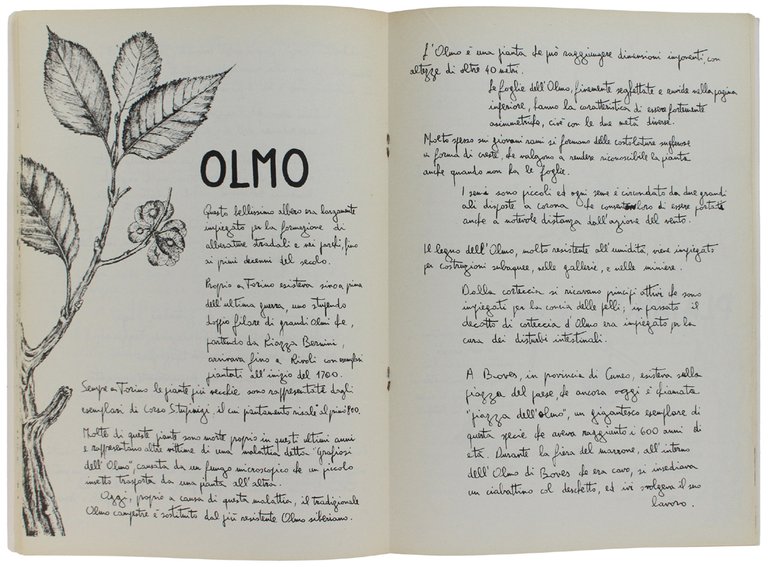 OLMO
Questo bellissimo albero era largamente
impiegato per la formazione di
alberature stradali e nei parchi, fino
ai primi decenni del secolo.
Proprio a Torino esisteva sino a, prima
dell'ultima guerra, uno stupendo
doppio filare di grandi Olmi che,
partendo da Piazza Bernini,
arrivava fino a Rivoli con esemplari
piantati all'inizio del 1700.
Sempre a Torino le piante più vecchie sono rappresentate dagli
esemplari di Corso Stupinigi, il cui piantamento risale ai primi '900.
Molte di queste piante sono morte proprio in questi ultimi anni
e rappresentano altre vittime di una malattia detta "Grafiosi
dell'Olmo", causata da un fungo microscopico che un piccolo
insetto trasporta da una pianta all'altra.
Oggi, proprio a causa di questa malattia, il tradizionale
Olmo campestre è sostituito dal più resistente Olmo siberiano.
L'Olmo è una pianta che può raggiungere dimensioni imponenti, con
altezze di oltre 40 metri.
Le foglie dell'Olmo, finemente seghettate e ruvide nella pagina
inferiore, hanno la caratteristica di essere fortemente
asimmetriche, cioè con le due metà diverse.
Molto spesso sui giovani rami si formano delle costolature sugherose
a forma di creste, che valgono a rendere riconoscibile la pianta
anche quando non ha le foglie.
I semi sono piccoli ed ogni seme è circondato da due grandi
ali disposte a corona che consentono loro di essere portati
anche a notevole distanza dall'azione del vento.
Il legno dell'Olmo, molto resistente all'umidità, viene impiegato
per costruzioni subacquee, nelle gallerie, e nelle miniere.
Dalla corteccia si ricavano principi attivi che sono
impiegati per la concia delle pelli; in passato il
decotto di corteccia d'Olmo era impiegato per la
cura dei disturbi intestinali.
A Boves, in provincia di Cuneo, esisteva sulla
piazza del paese, che ancora oggi è chiamata
"piazza dell'olmo", un gigantesco esemplare di
questa specie che aveva raggiunto i 600 anni di
età. Durante la fiera del marrone, all'interno
dell'Olmo di Boves che era cavo, si insediava
un ciabattino col deschetto, ed ivi svolgeva il suo
lavoro.